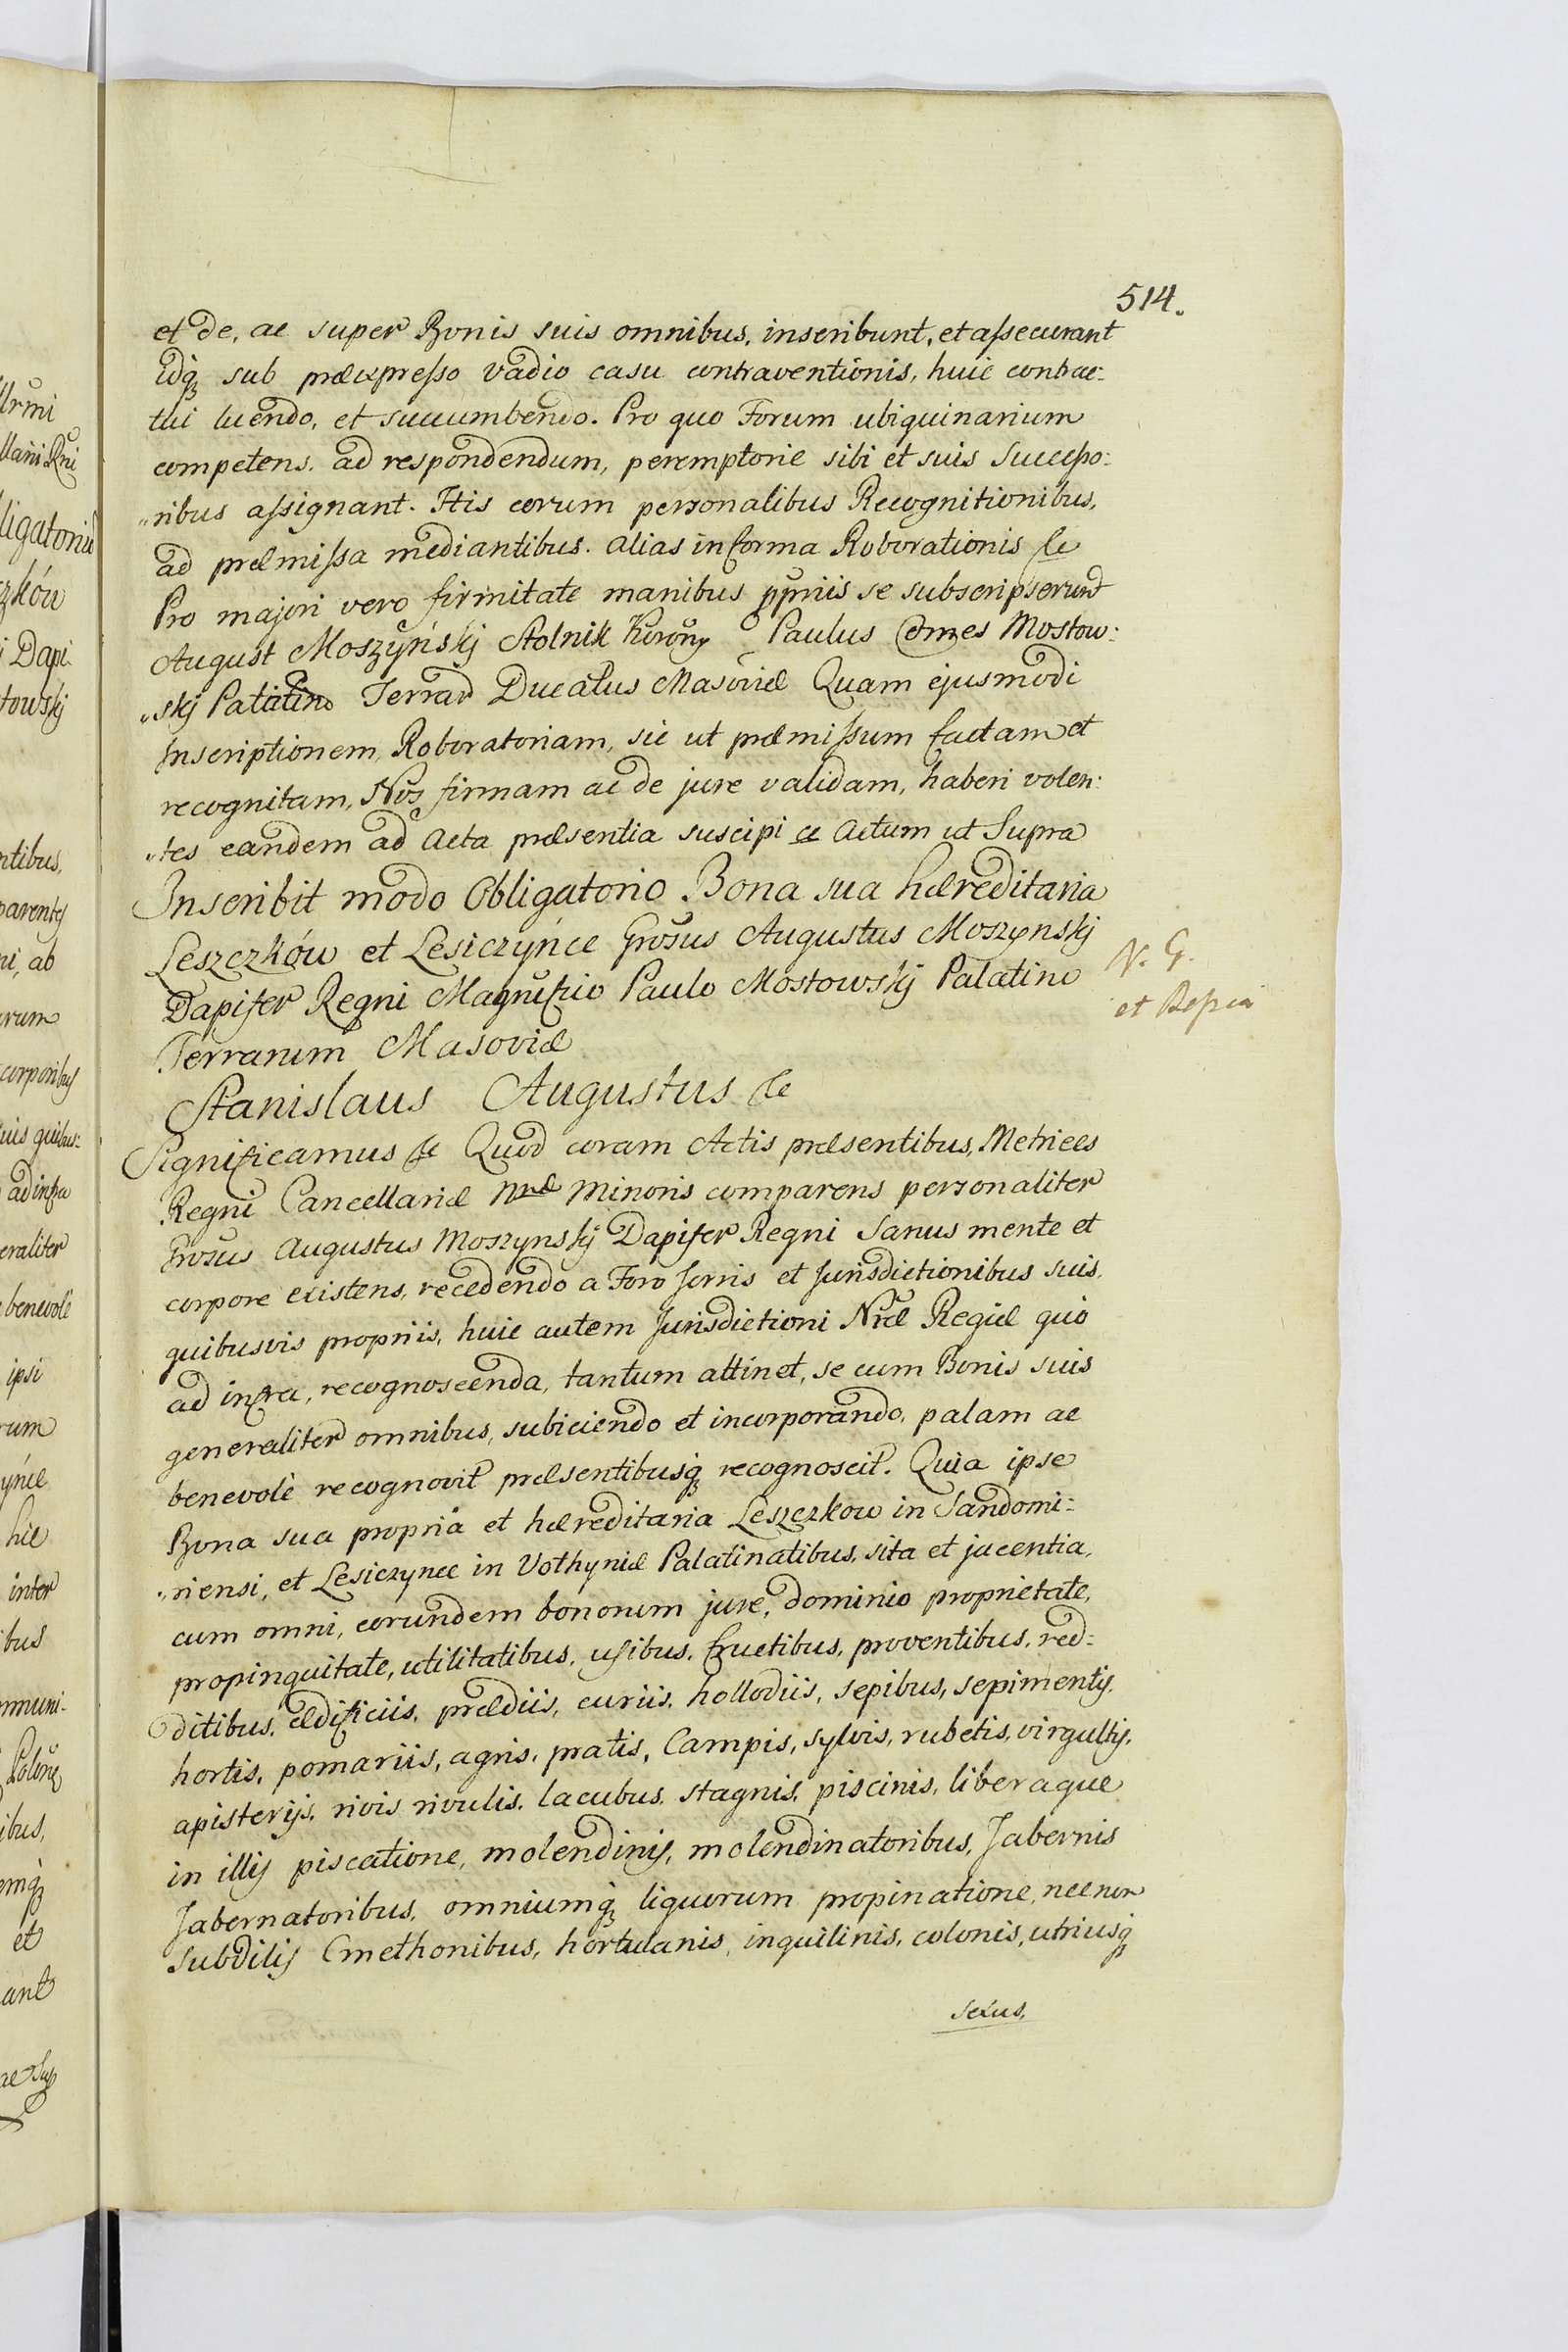 514.
et de, ac super Bonis suis omnibus, inscribunt, et assecurant
idq; sub præexpresso vadio casu contraventionis, huic contrac:
tui luendo, et succumbendo. Pro quo Forum ubiquinarium
competens, ad respondendum, peremptorie sibi et suis Successo:
"ribus assignant. His eorum personalibus Recognitionibus,
ad præmissa mediantibus. alias in forma Roborationis &c
Pro majori vero firmitate manibus ppriis se subscripserunt
August Moszyński Stolnik Korony Paulus Comes Mostow:
"skj Palatino Terrar Ducatus Masoviæ Quam ejusmodi
Inscriptionem, Roboratoriam, sic ut præmissum factam et
recognitam, Nos firmam ac de jure validam, haberi volen:
"tes eandem ad Acta præsentia suscipi &c Actum ut Supra
Inscribit modo Obligatorio Bona sua hæreditaria
Leszczków et Lesiczyńce Grosus Augustus Moszynskj
Dapifer Regni Magnifico Paulo Mostowskj Palatino
Terrarum Masoviæ
N. G.
et
Stanislaus Augustus &c
Significamus &c Quod coram Actis præsentibus, Metrices
Regni Cancellariæ Nræ Minoris comparens personaliter
Grosus Augustus Moszynskj Dapifer Regni Sanus mente et
corpore existens, recedendo a Foro Terris et Jurisdictionibus suis,
quibusvis propriis, huic autem Jurisdictioni Nræ Regiæ quo
ad infra, recognoscenda, tantum attinet, se cum Bonis suis
generaliter omnibus, subiciendo et incorporando, palam ac
benevolè recognovit præsentibusq; recognoscit. Quia ipse
Bona sua propria et hæreditaria Leszczkow in Sandomi:
"riensi, et Lesiczynce in Volhyniæ Palatinatibus, sita et jacentia,
cum omni, eorundem bonorum jure, dominio proprietate,
propinquitate, utilitatibus, usibus, fructibus, proventibus, red:
ditibus, ædificiis, prædiis, curiis, hollodiis, sepibus, sepimentis,
hortis, pomariis, agris, pratis, Campis, sylvis, rubetis, virgultis,
apisterijs, rivis rivulis, lacubus, stagnis, piscinis, liberaque
in illis piscatione, molendinis, molendinatoribus, Tabernis
Tabernatoribus, omniumq; liquorum propinatione, necnon
Subditis Cmethonibus, hortulanis, inquilinis, colonis, utriusq;
sexus,